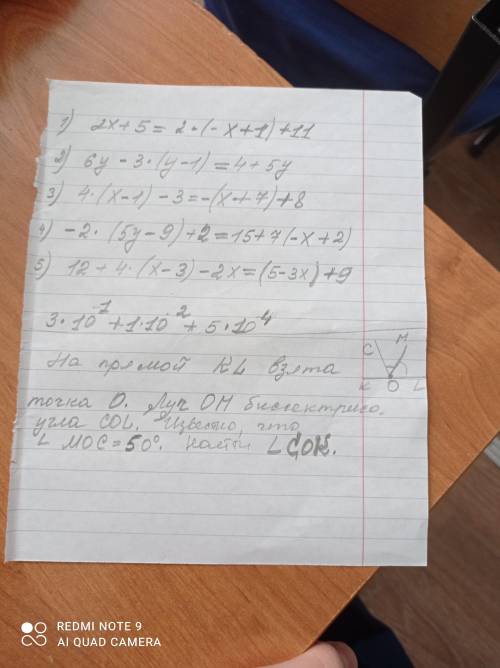 1) 2x + 5 = 2·(-x+1)+11
2) 6y - 3·(y-1) = 4+5y
3) 4·(x-1) - 3 = -(x+7)+8
4) -2·(5y-9)+2 = 15+7(-x+2)
5) 12 + 4·(x-3) - 2x = (5-3x)+9
3·10⁻¹ + 1·10⁻² + 5·10⁴
На прямой KL взята
C M
K O L
точка O. Луч OM биссектриса.
угла COL. Известно, что
∠ MOC = 50°. Найти ∠COK.
REDMI NOTE 9
AI QUAD CAMERA